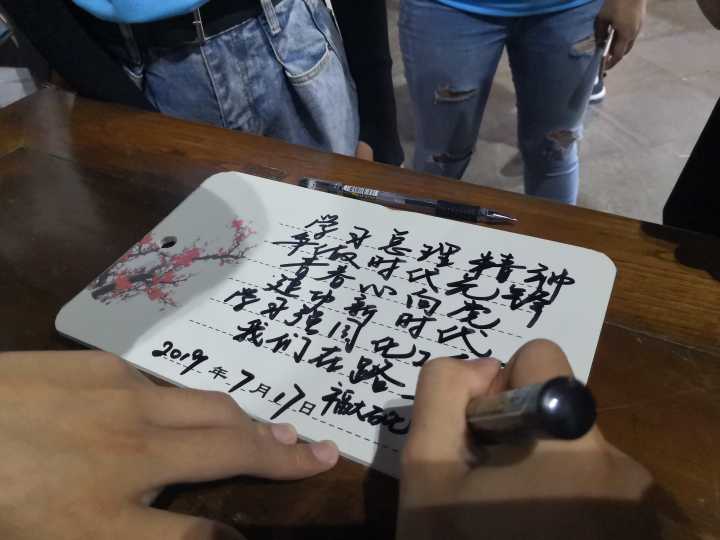 学习总理精神
争做时代先锋
青春心向党
建功新时代
学习强国
我们在路
2019年7月17日 福大石化